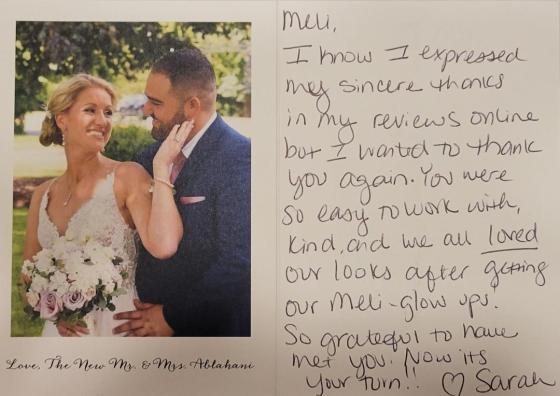 Love, The New Mr. & Mrs. Ablahani
Meli,
I know I expressed
my sincere thanks
in my reviews online
but I wanted to thank
you again. You were
so easy to work with,
kind, and we all loved
our looks after getting
our Meli-glow ups.
So grateful to have
met you. Now its
your turn!! ♡ Sarah